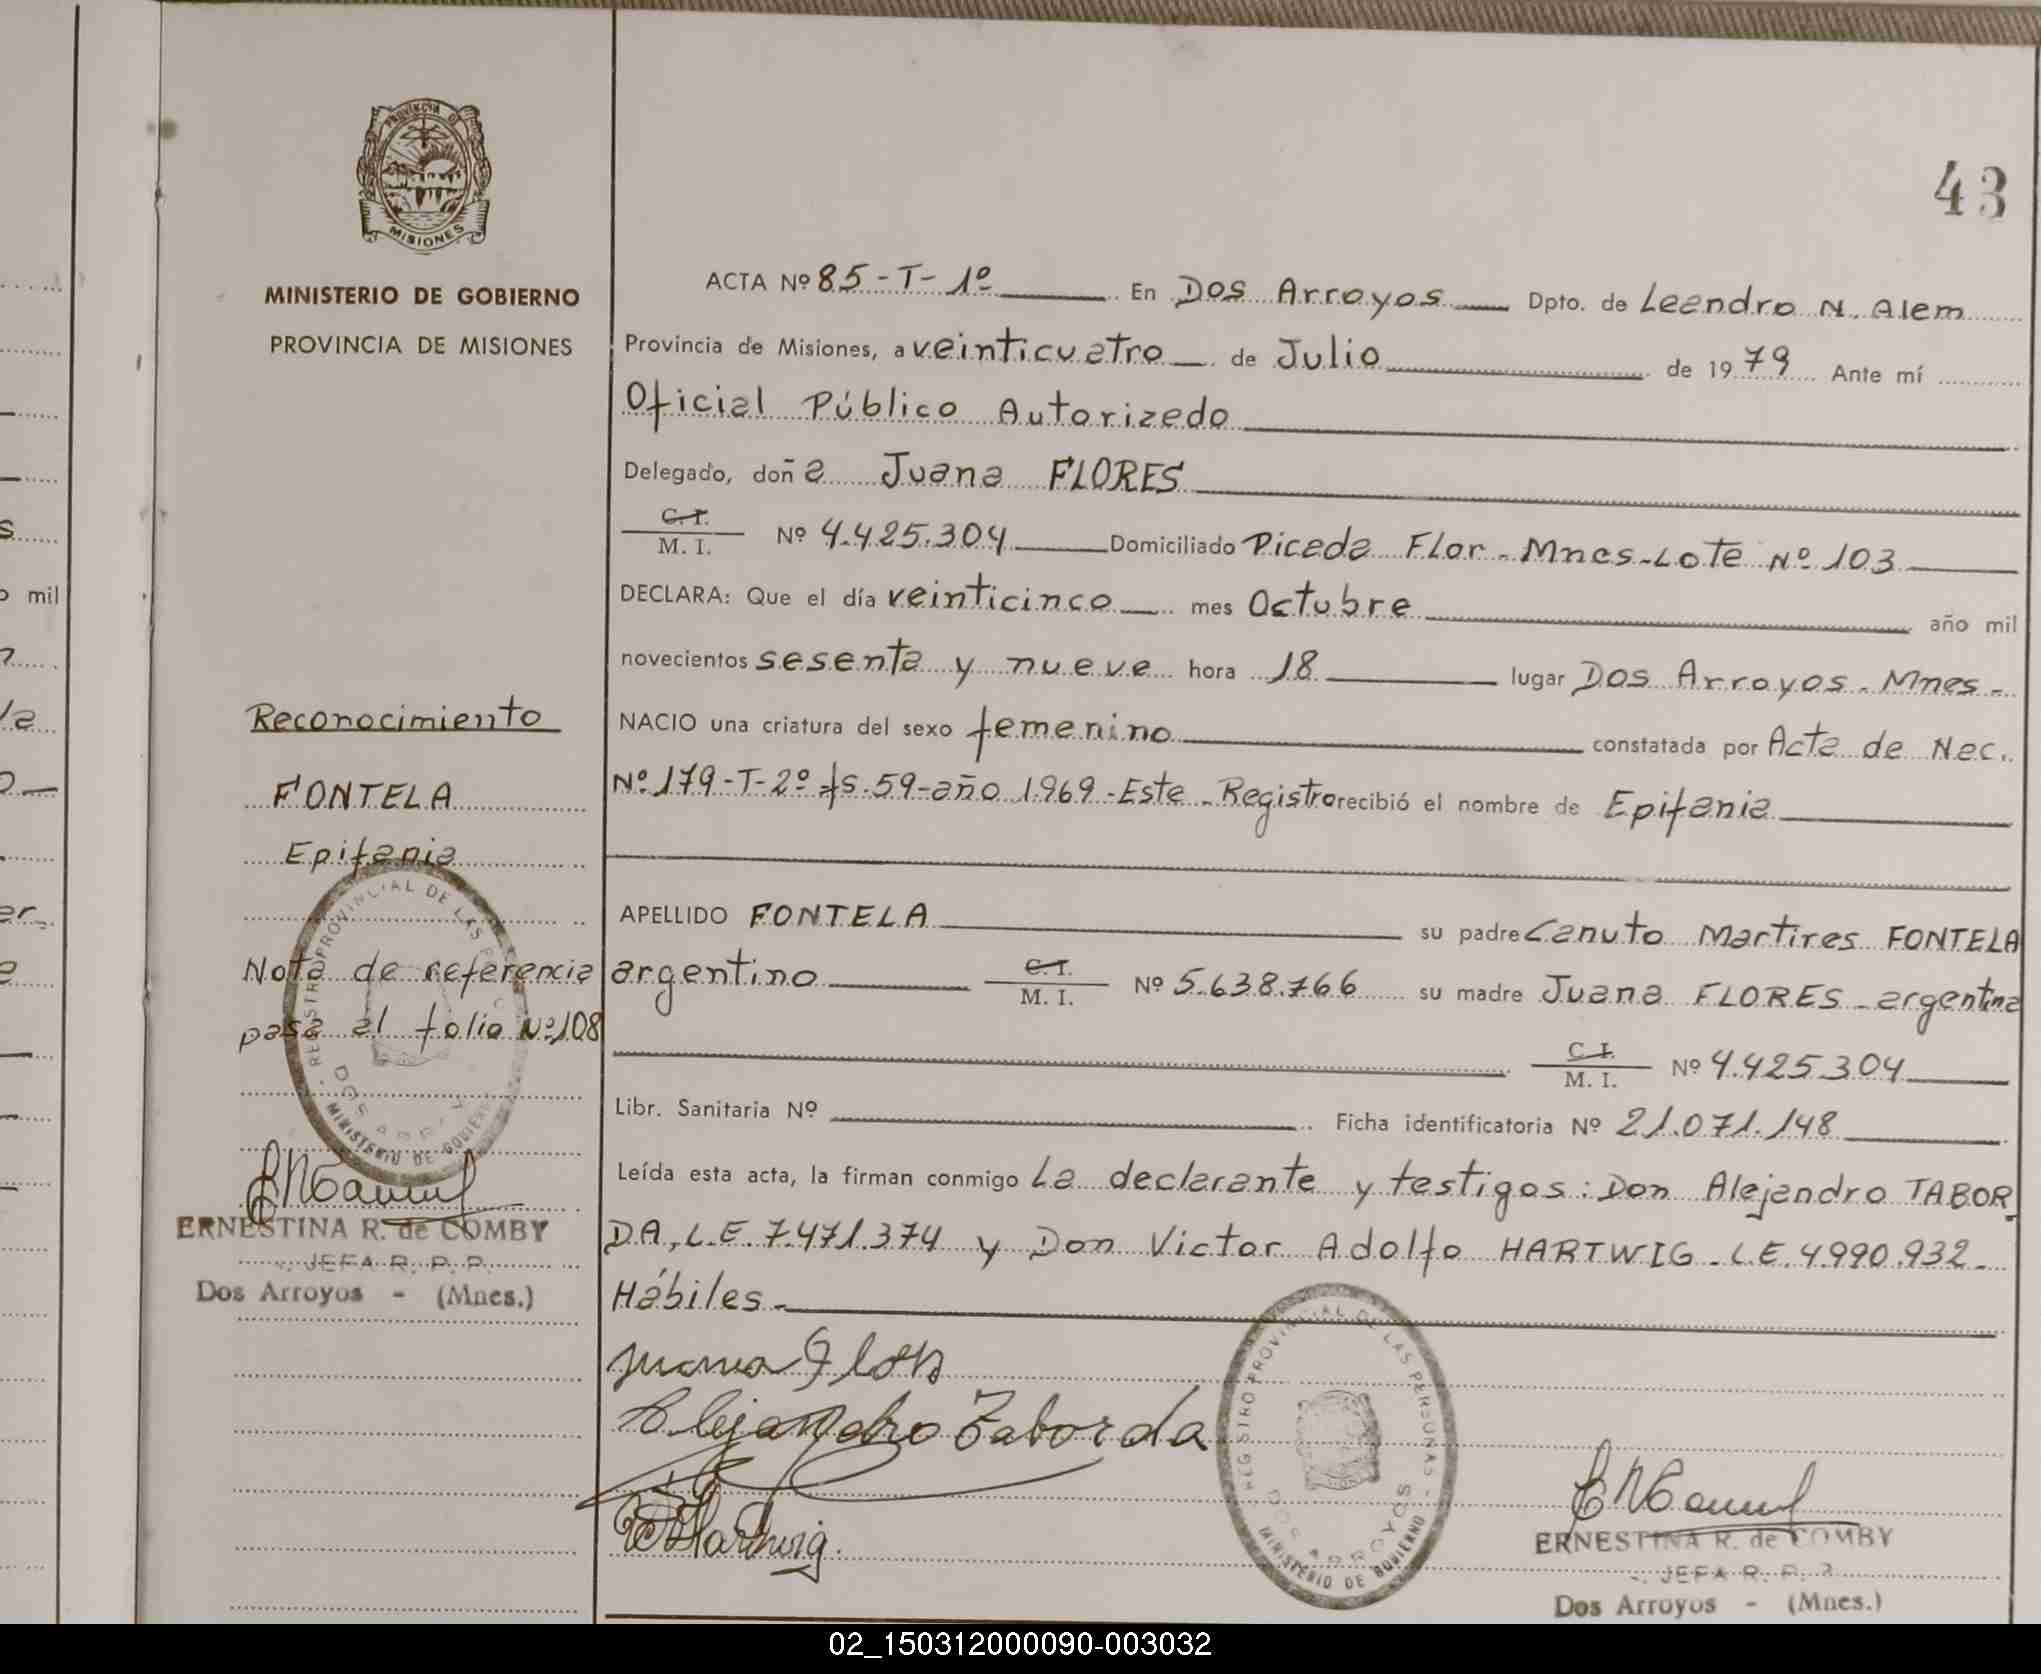 PROVINCIA DE
MISIONES
MINISTERIO DE GOBIERNO
PROVINCIA DE MISIONES
43
ACTA Nº 85-T-1º En Dos Arroyos Dpto. de Leandro N. Alem
Provincia de Misiones, a veinticuatro de Julio de 1979 Ante mí
Oficial Público Autorizado
Delegado, doña Juana FLORES
C.I.
M. I. Nº 4.425.304 Domiciliado Picada Flor - Mnes - Lote Nº 103
DECLARA: Que el día veinticinco mes Octubre año mil
novecientos sesenta y nueve hora 18 lugar Dos Arroyos - Mnes -
NACIO una criatura del sexo femenino constatada por Acta de Nac.
Nº 179-T-2º fs. 59-año 1969 - Este - Registro recibió el nombre de Epifania
APELLIDO FONTELA su padre Canuto Martires FONTELA
argentino C.I.
M. I. Nº 5.638.766 su madre Juana FLORES - argentina
C.I.
M. I. Nº 4.425.304
Libr. Sanitaria Nº Ficha identificatoria Nº 21.071.148
Leída esta acta, la firman conmigo La declarante y testigos: Don Alejandro TABOR
DA, L.E. 7.471.374 y Don Victor Adolfo HARTWIG - L.E. 4.990.932 -
Hábiles -
Juana Flores
Alejandro Taborda
Hartwig
REGISTRO PROVINCIAL DE LAS PERSONAS
DOS ARROYOS
MINISTERIO DE GOBIERNO
ERNESTINA R. de COMBY
JEFA R. P. P.
Dos Arroyos - (Mnes.)
Reconocimiento
FONTELA
Epifania
Nota de referencia
pasa al folio Nº 108
REGISTRO PROVINCIAL DE LAS
DOS ARROY
MINISTERIO DE GOBIERNO
ERNESTINA R. de COMBY
JEFA R. P. P.
Dos Arroyos - (Mnes.)
mil
02_150312000090-003032